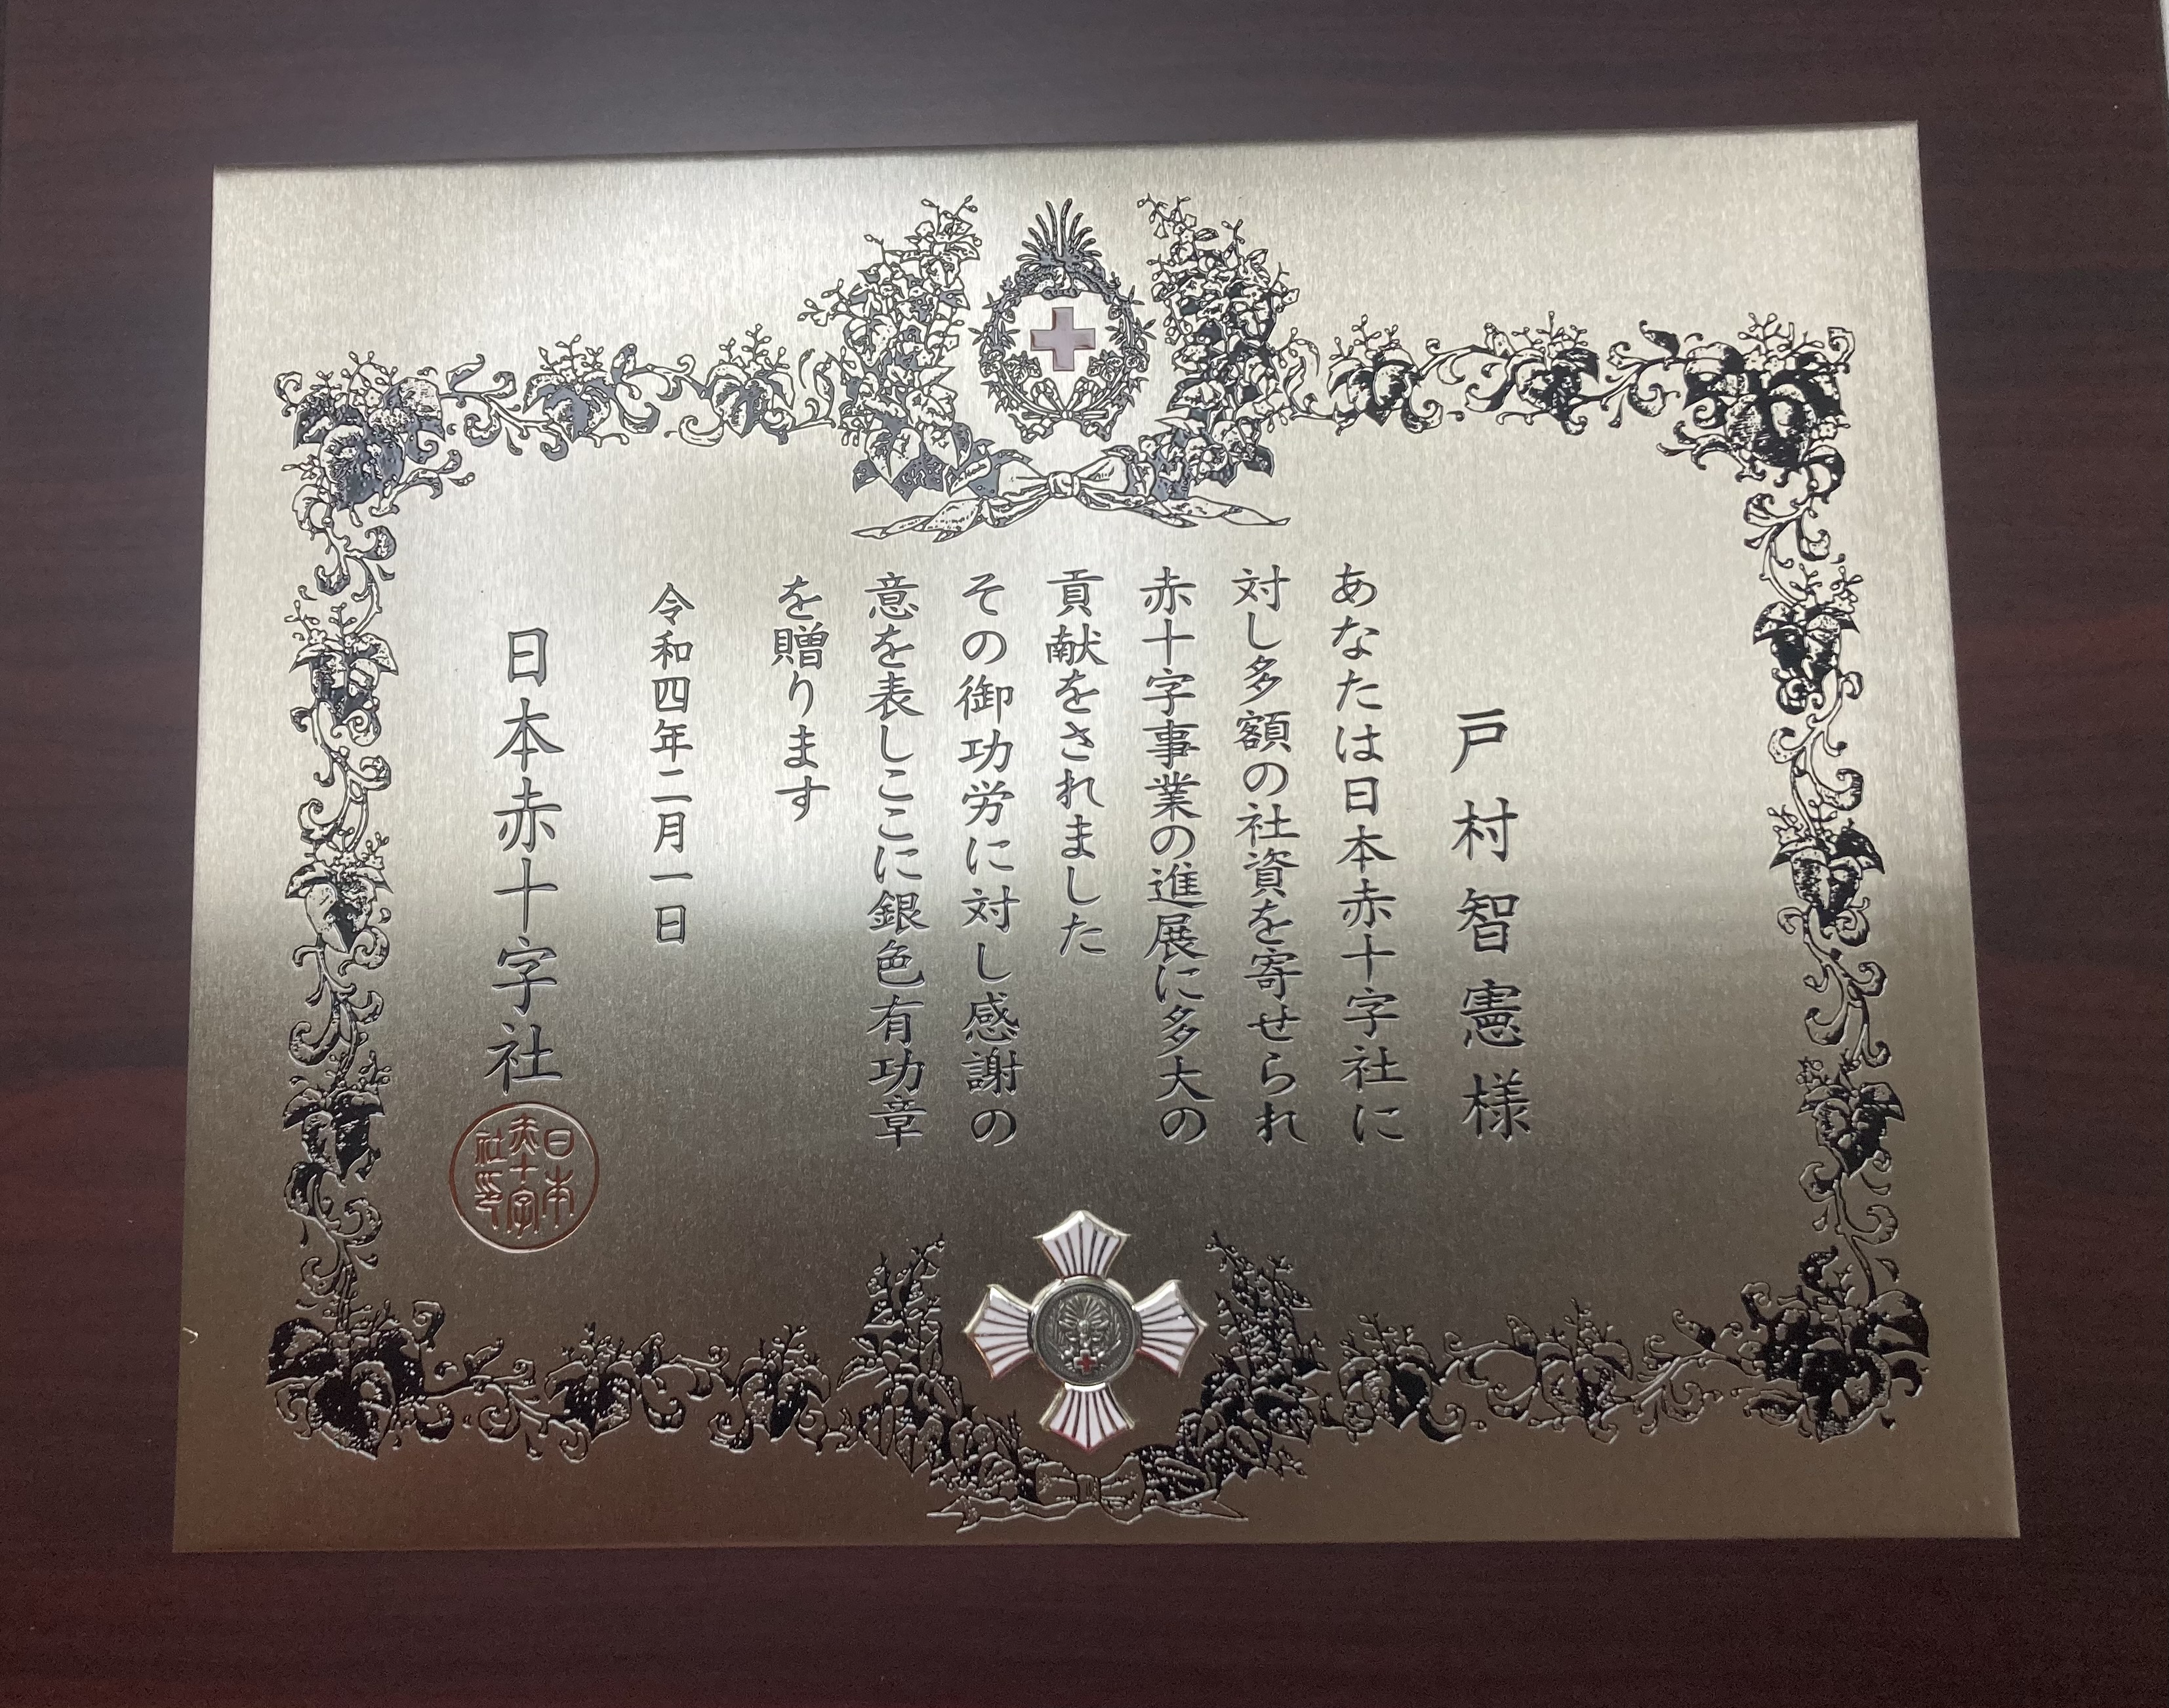 戸村智憲様
あなたは日本赤十字社に
対し多額の社資を寄せられ
赤十字事業の進展に多大の
貢献をされました
その御功労に対し感謝の
意を表しここに銀色有功章
を贈ります
令和四年二月一日
日本赤十字社
日本
赤十字
社印